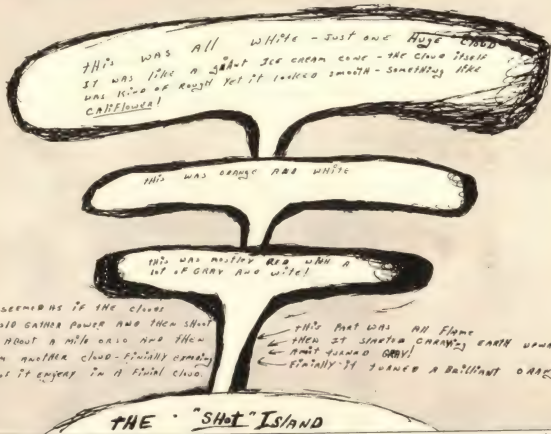 THIS WAS All WHITE - JUST ONE HUGE CLOUD
IT WAS LIKE A GIANT ICE CREAM CONE - THE CLOUD ITSELF
WAS KIND OF ROUGH YET IT LOOKED SMOOTH - SOMETHING LIKE
CALIFLOWER!
THIS WAS ORANGE AND WHITE
THIS WAS MOSTLY RED WITH A
LOT OF GRAY AND WITE!
SEEMED AS IF THE CLOUDS
GATHER POWER AND THEN SHOOT
ABOUT A MILE OR SO AND THEN
ANOTHER CLOUD - FINIALLY
OF IT ENGERY IN A FINIAL CLOUD.
THIS PART WAS ALL FLAME
THEN IT STARTED CARRYING EARTH
TURNED GRAY!
FINIALLY IT TURNED A BRILLIANT
THE "SHOT" ISLAND